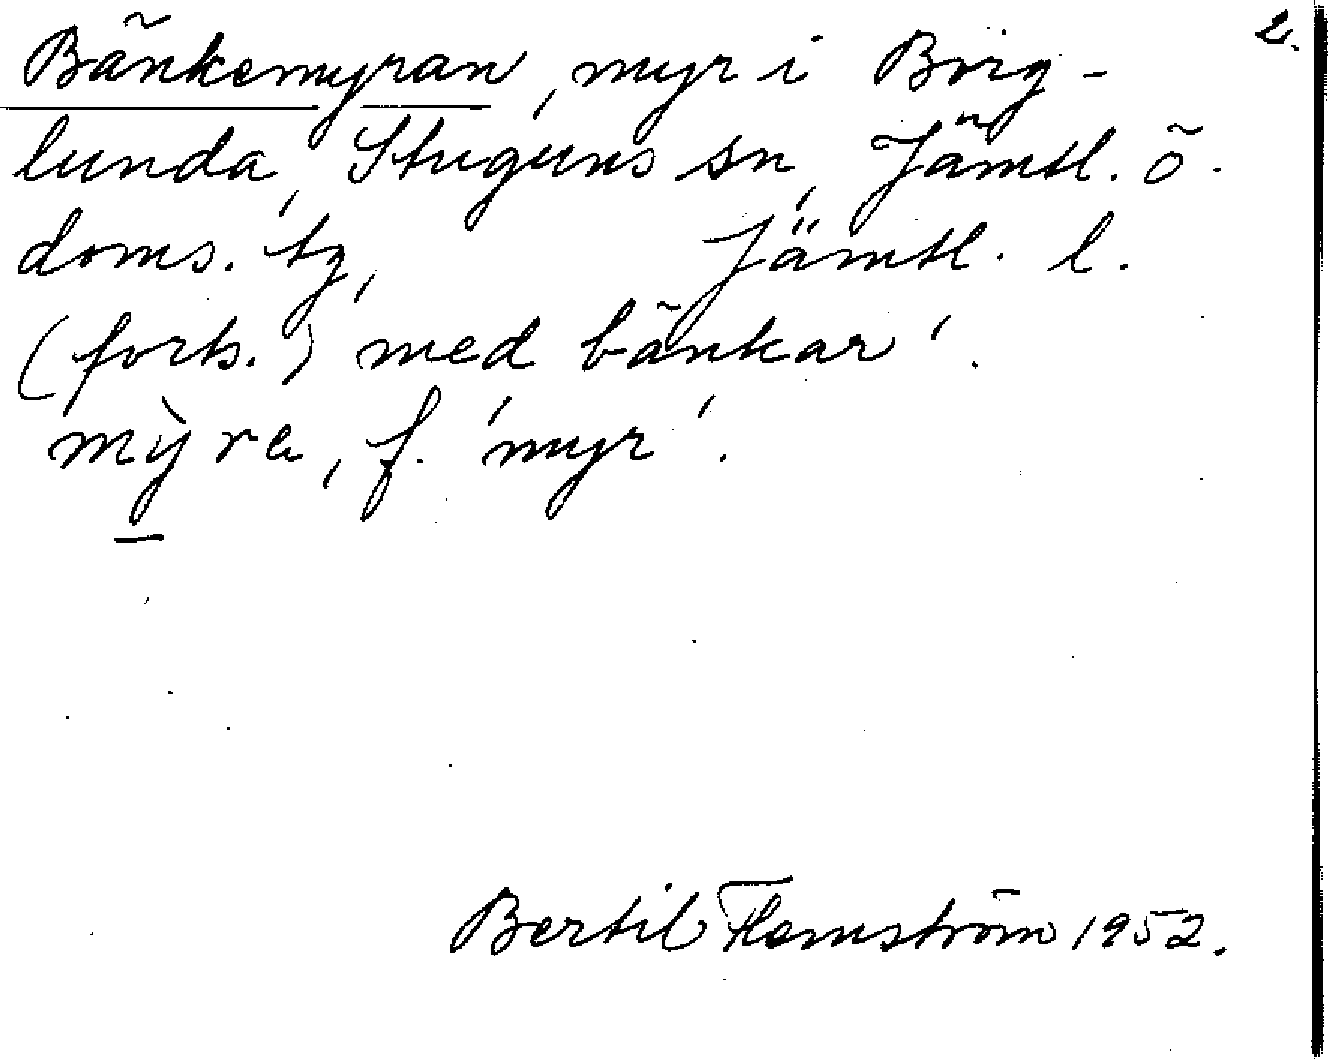 2.
Bänkemyran, myr i Borg-
lunda, Stuguns sn, Jämtl. ö.
doms. tg, Jämtl. l.
(forts.) med bänkar'.
mỳra, f. 'myr'.
Bertil Flemström 1952.